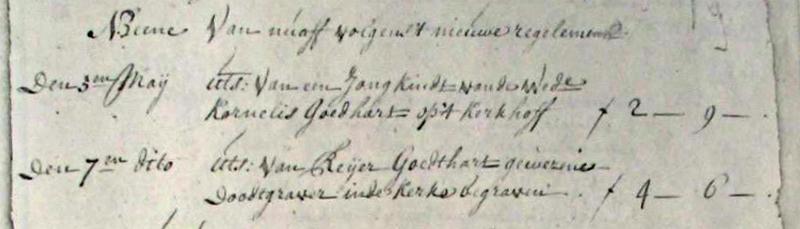 NBeene Van nu aff volgens't nieuwe regelement
Den 5en Maÿ uts: Van een Jong kindt vande Wede
Kornelis Goedhart op't kerkhoff f 2 — 9 — .
Den 7en dito uts: Van Reÿer Goedthart gewesene
Doodtgraver inde kerke begraven . f 4 — 6 — .